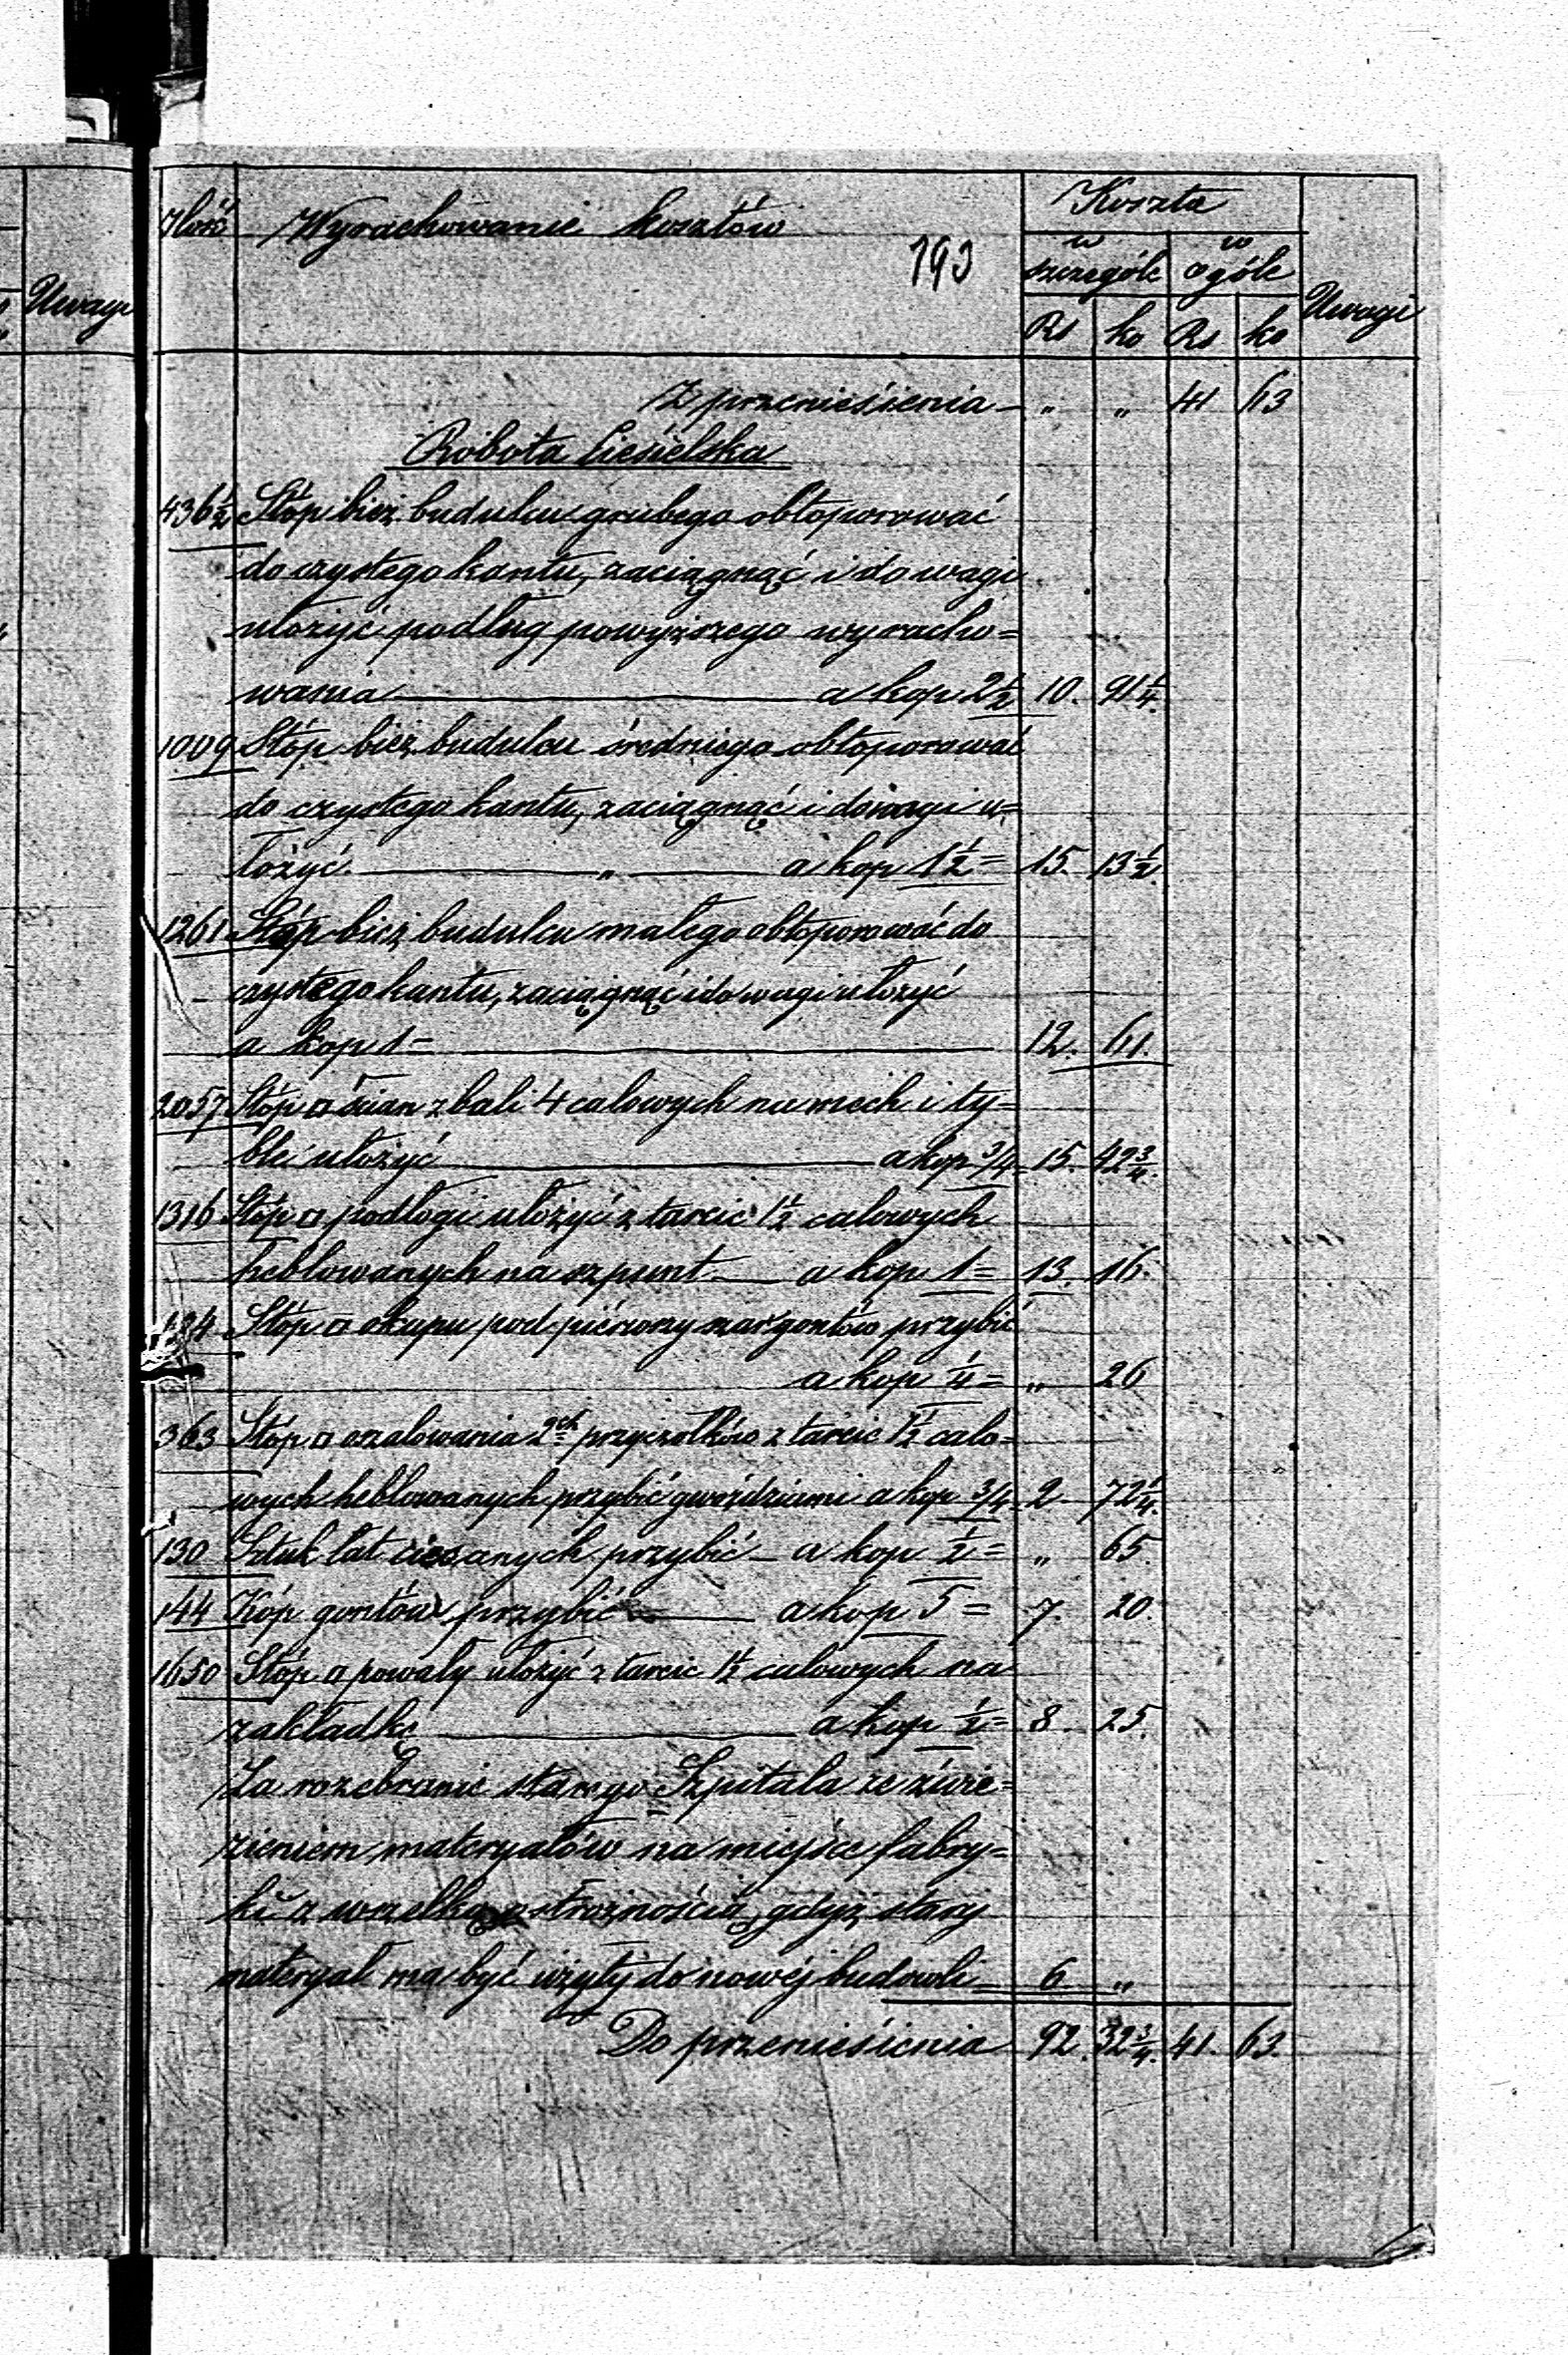 Uwagi
Ilość Wyrachowanie kosztów Koszta
193
w szczególe w ogóle Uwagi
Rs ko Rs ko
Z przeniesienia „ „ 41 63
Robota Ciesielska
436½ Stóp bież. budulcu grubego obtoporować
do czystego kantu, zaciągnąć i do wagi
ułożyć podług powyższego wyracho=
wania a kop 2½ 10. 91¼.
1009 Stóp bież. budulcu średniego obtoporować
do czystego kantu, zaciągnąć i do wagi u=
łożyć. „ a kop 1½= 15. 13½.
1261 Stóp bież budulcu małego obtoporować do
czystego kantu, zaciągnąć i do wagi ułożyć
a kop 1= 12. 61.
2057 Stóp □ ścian z bali 4 calowych na mech i ty=
ble ułożyć a kop ¾ 15. 42¾.
1316 Stóp □ podłogi ułożyć z tarcic 1½ calowych
heblowanych na szpunt a kop 1= 13. 16.
104 Stóp □ okapu pod pierwszy szar gontów przybić
a kop ¼= „ 26
363 Stóp □ oszalowania 2ch przyczołków z tarcic 1½ calo=
wych heblowanych przybić gwoździami a kop ¾ 2 72¼.
130 Sztuk łat ciosanych przybić a kop ½= „ 65.
144 Kóp gontów przybić a kop 5= 7. 20.
1650 Stóp □ powały ułożyć z tarcic 1½ calowych na
zakładkę a kop ½= 8. 25.
Za rozebranie starego Szpitala ze zwie=
zieniem materyałów na miejsce fabry=
ki z wszelką ostrożnością, gdyż stary
materyał ma być użyty do nowéj budowli 6 „
Do przeniesienia 92. 32¾. 41. 63.